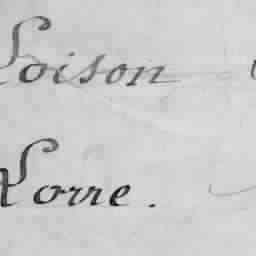 Loison
Lorre.